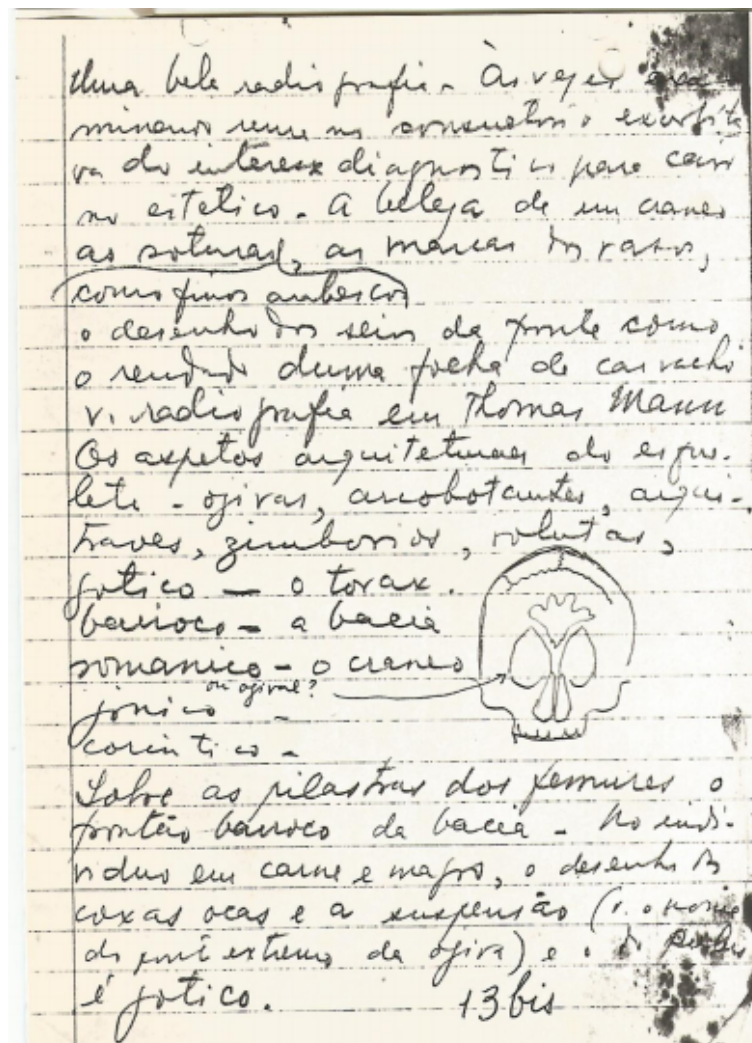 Uma bela radiografia. Às vezes exa-
minando uma no consultorio exorbita
va do interesse diagnostico para cair
no estetico. A beleza de um craneo
as soturas, as marcas dos vasos,
como finos arabescos
o desenho dos seios da fronte como
o rendado duma folha de carvalho
v. radiografia em Thomas Mann
Os aspetos arquiteturaes do esque-
leto - ogivas, arcobotantes, arqui-
traves, zimborios, volutas,
gotico — o torax.
barroco - a bacia
romanico - o craneo
ou ogival?
jonico -
corintico -
Sobre as pilastras dos femures o
frontão barroco da bacia - No indi-
viduo em carne e magro, o desenho das
coxas ocas e a suspensão (v. o nome
do ponto extremo da ogiva) e o do
é gotico. 13 bis